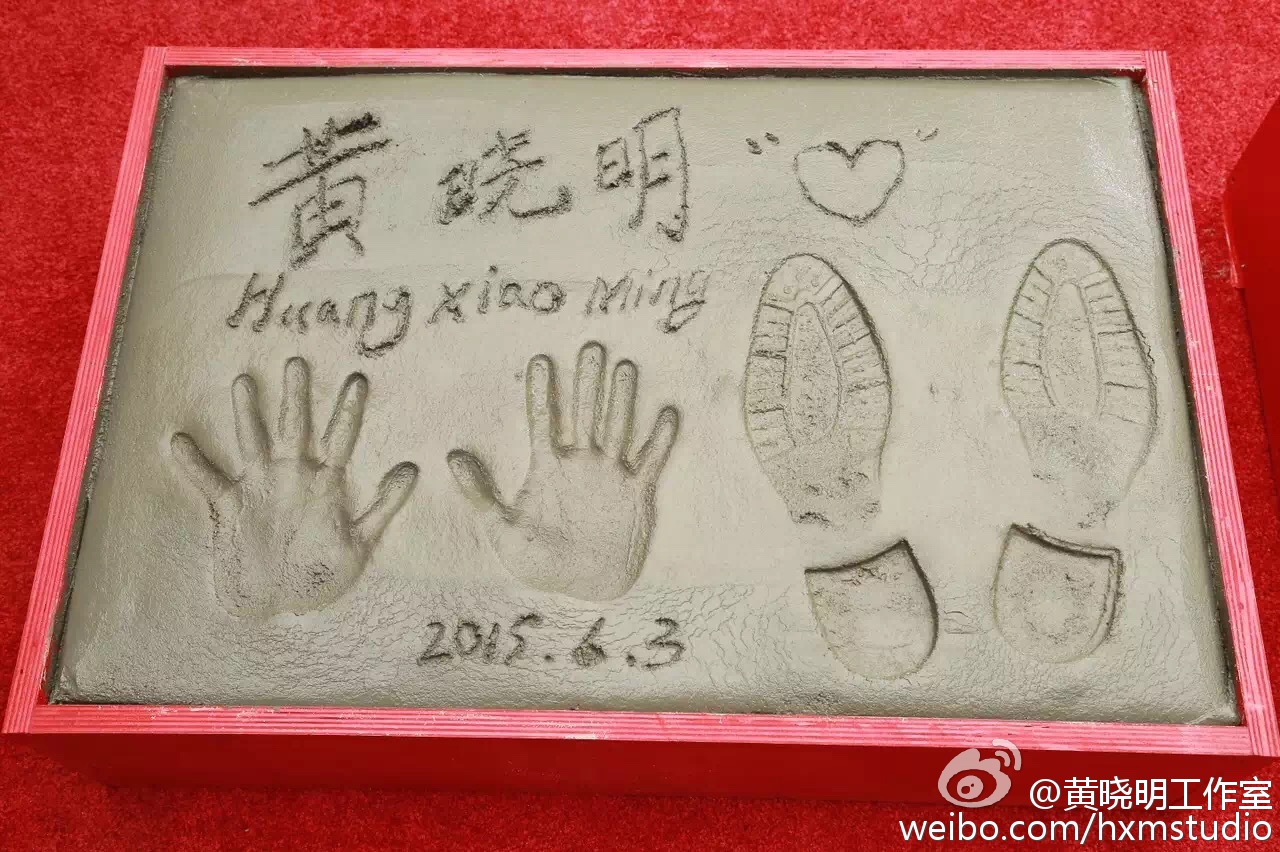 黄晓明 "♡"
Huang xiao Ming
2015.6.3
@黄晓明工作室
weibo.com/hxmstudio